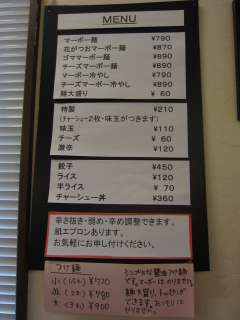 MENU
マーボー麺 ¥790
花がつおマーボー麺 ¥870
ゴママーボー麺 ¥890
チーズマーボー麺 ¥890
マーボー冷やし ¥790
チーズマーボー冷やし ¥890
麺大盛り ¥ 60
特製 ¥210
(チャーシュー2枚・味玉がつきます)
味玉 ¥110
チーズ ¥ 60
激辛 ¥120
餃子 ¥450
ライス ¥120
半ライス ¥ 70
チャーシュー丼 ¥360
辛さ抜き・弱め・辛め調整できます。
紙エプロンあります。
お気軽にお申し付けください。
つけ麺
¥720
¥790
¥900